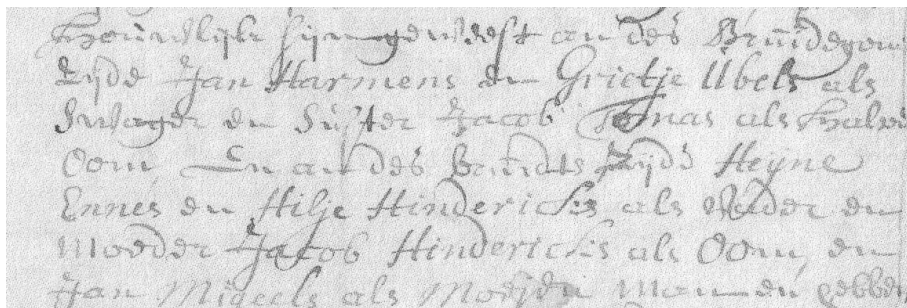 Houwlijk sijn geweest an des Bruidegoms
Zijde Jan Harmens en Grietje Ubels als
Swager en Suster Jacob Tomas als halve
Oom, En an des Bruidts Zijde Heijne
Ennes en Hilje Hindericks als Vader en
Moeder Jacob Hindericks als Oom, en
Jan Migeels als Moejen Man en hebben